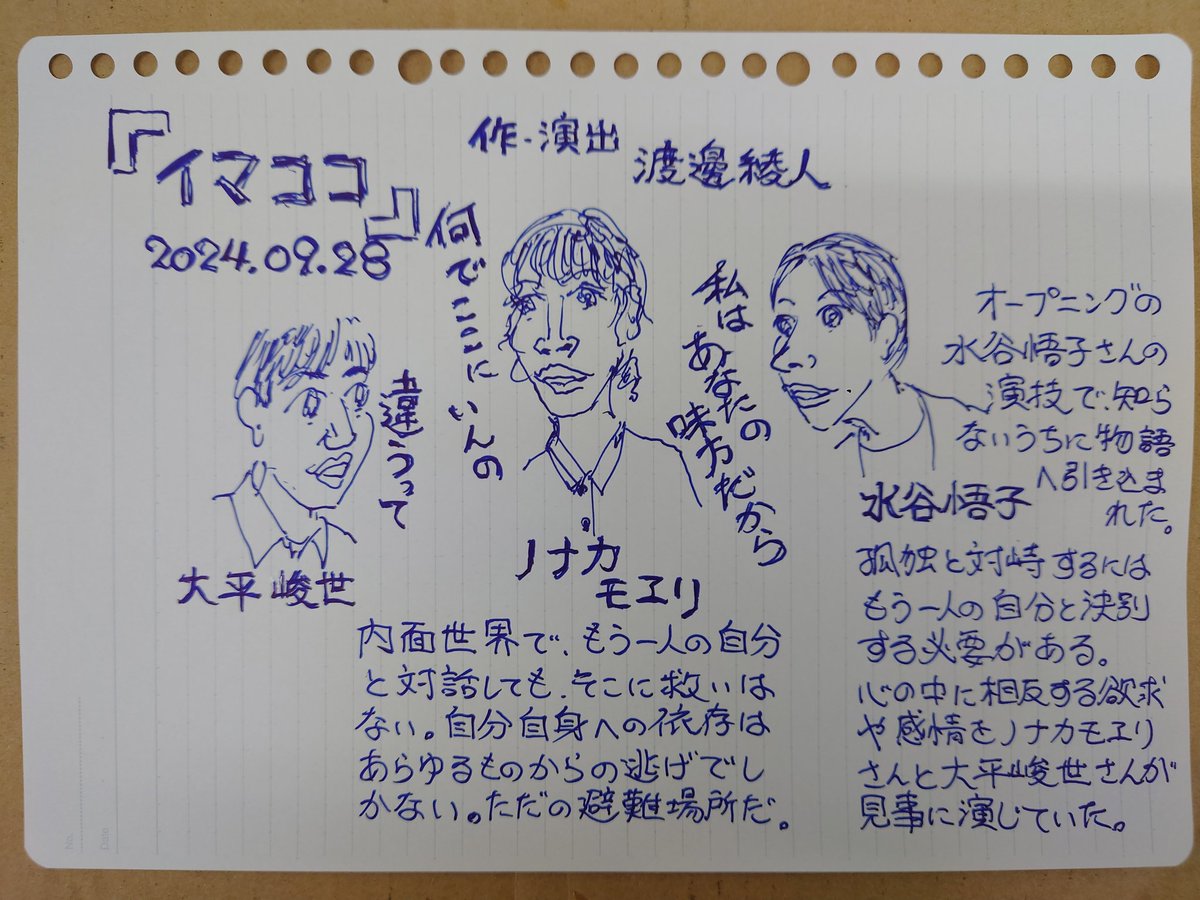 『イマココ』
2024.09.28
作・演出
渡邊綾人
違うって
大平峻世
何でここにいんの
ノナカ
モヱリ
私はあなたの
味方だから
水谷悟子
オープニングの
水谷悟子さんの
演技で、知ら
ないうちに物語
へ引き込ま
れた。
内面世界で、もう一人の自分
と対話しても、そこに救いは
ない。自分自身への依存は
あらゆるものからの逃げでし
かない。ただの避難場所だ。
孤独と対峙するには
もう一人の自分と決別
する必要がある。
心の中に相反する欲求
や感情をノナカモヱリ
さんと大平峻世さんが
見事に演じていた。
No.
Date